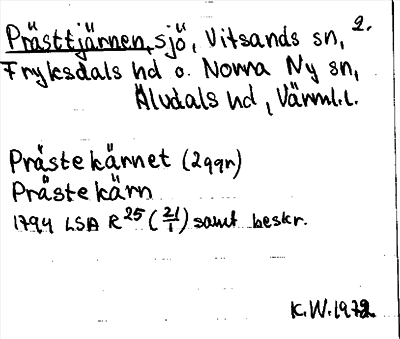 Prästtjärnen, sjö, Vitsands sn, 2.
Fryksdals hd o. Norra Ny sn,
Älvdals hd, Värml.l.
Prästekärnet (2ggr)
Prästekärn
1794 LSA R 25 (21/1) samt beskr.
K.W.1972